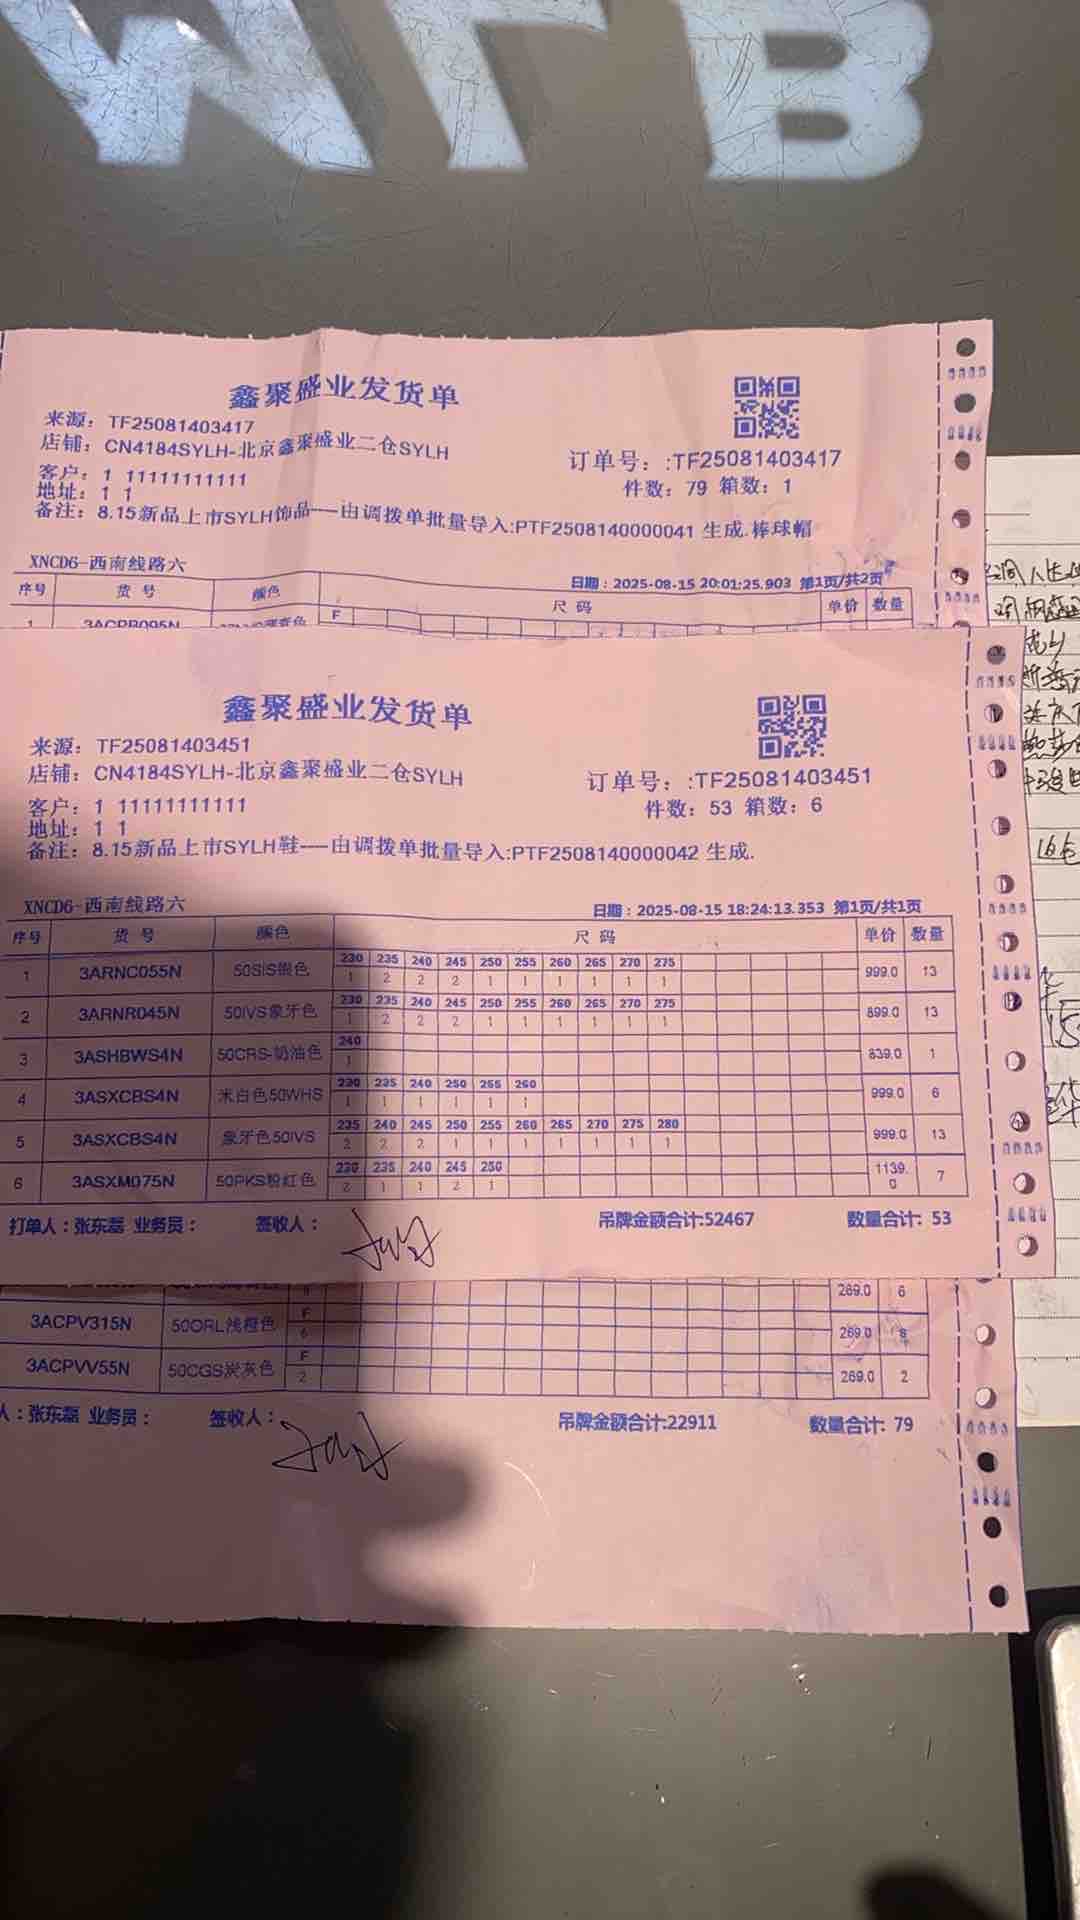 鑫聚盛业发货单
来源：TF25081403417
店铺：CN4184SYLH-北京鑫聚盛业二仓SYLH
订单号：:TF25081403417
客户：1 11111111111
件数：79 箱数：1
地址：1 1
备注：8.15新品上市SYLH饰品----由调拨单批量导入:PTF2508140000041 生成.棒球帽
XNCD6-西南线路六
日期：2025-08-15 20:01:25.903 第1页/共2页
序号 货号 颜色 尺码 单价 数量
1 3ACPB095N F
鑫聚盛业发货单
来源：TF25081403451
店铺：CN4184SYLH-北京鑫聚盛业二仓SYLH
订单号：:TF25081403451
客户：1 11111111111
件数：53 箱数：6
地址：1 1
备注：8.15新品上市SYLH鞋----由调拨单批量导入:PTF2508140000042 生成.
XNCD6-西南线路六
日期：2025-08-15 18:24:13.353 第1页/共1页
序号 货号 颜色 尺码 单价 数量
230 235 240 245 250 255 260 265 270 275
1 3ARNC055N 50SIS银色 1 2 2 2 1 1 1 1 1 1 999.0 13
230 235 240 245 250 255 260 265 270 275
2 3ARNR045N 50IVS象牙色 1 2 2 2 1 1 1 1 1 1 899.0 13
240
3 3ASHBWS4N 50CRS-奶油色 1 839.0 1
230 235 240 250 255 260
4 3ASXCBS4N 米白色50WHS 1 1 1 1 1 1 999.0 6
235 240 245 250 255 260 265 270 275 280
5 3ASXCBS4N 象牙色50IVS 2 2 2 1 1 1 1 1 1 1 999.0 13
230 235 240 245 250
6 3ASXM075N 50PKS粉红色 2 1 1 2 1 1139.0 7
打单人：张东磊 业务员： 签收人： 吊牌金额合计:52467 数量合计: 53
269.0 6
F
3ACPV315N 50ORL浅橙色 269.0
F
3ACPVV55N 50CGS炭灰色 2 269.0 2
人：张东磊 业务员： 签收人： 吊牌金额合计:22911 数量合计: 79